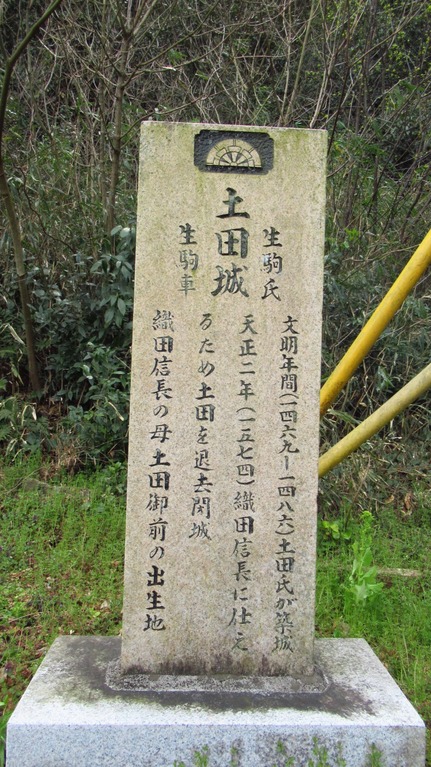 生駒氏
土田城
生駒車
文明年間(一四六九ー一四八六)土田氏が築城
天正二年(一五七四)織田信長に仕え
るため土田を退土開城
織田信長の母土田御前の出生地